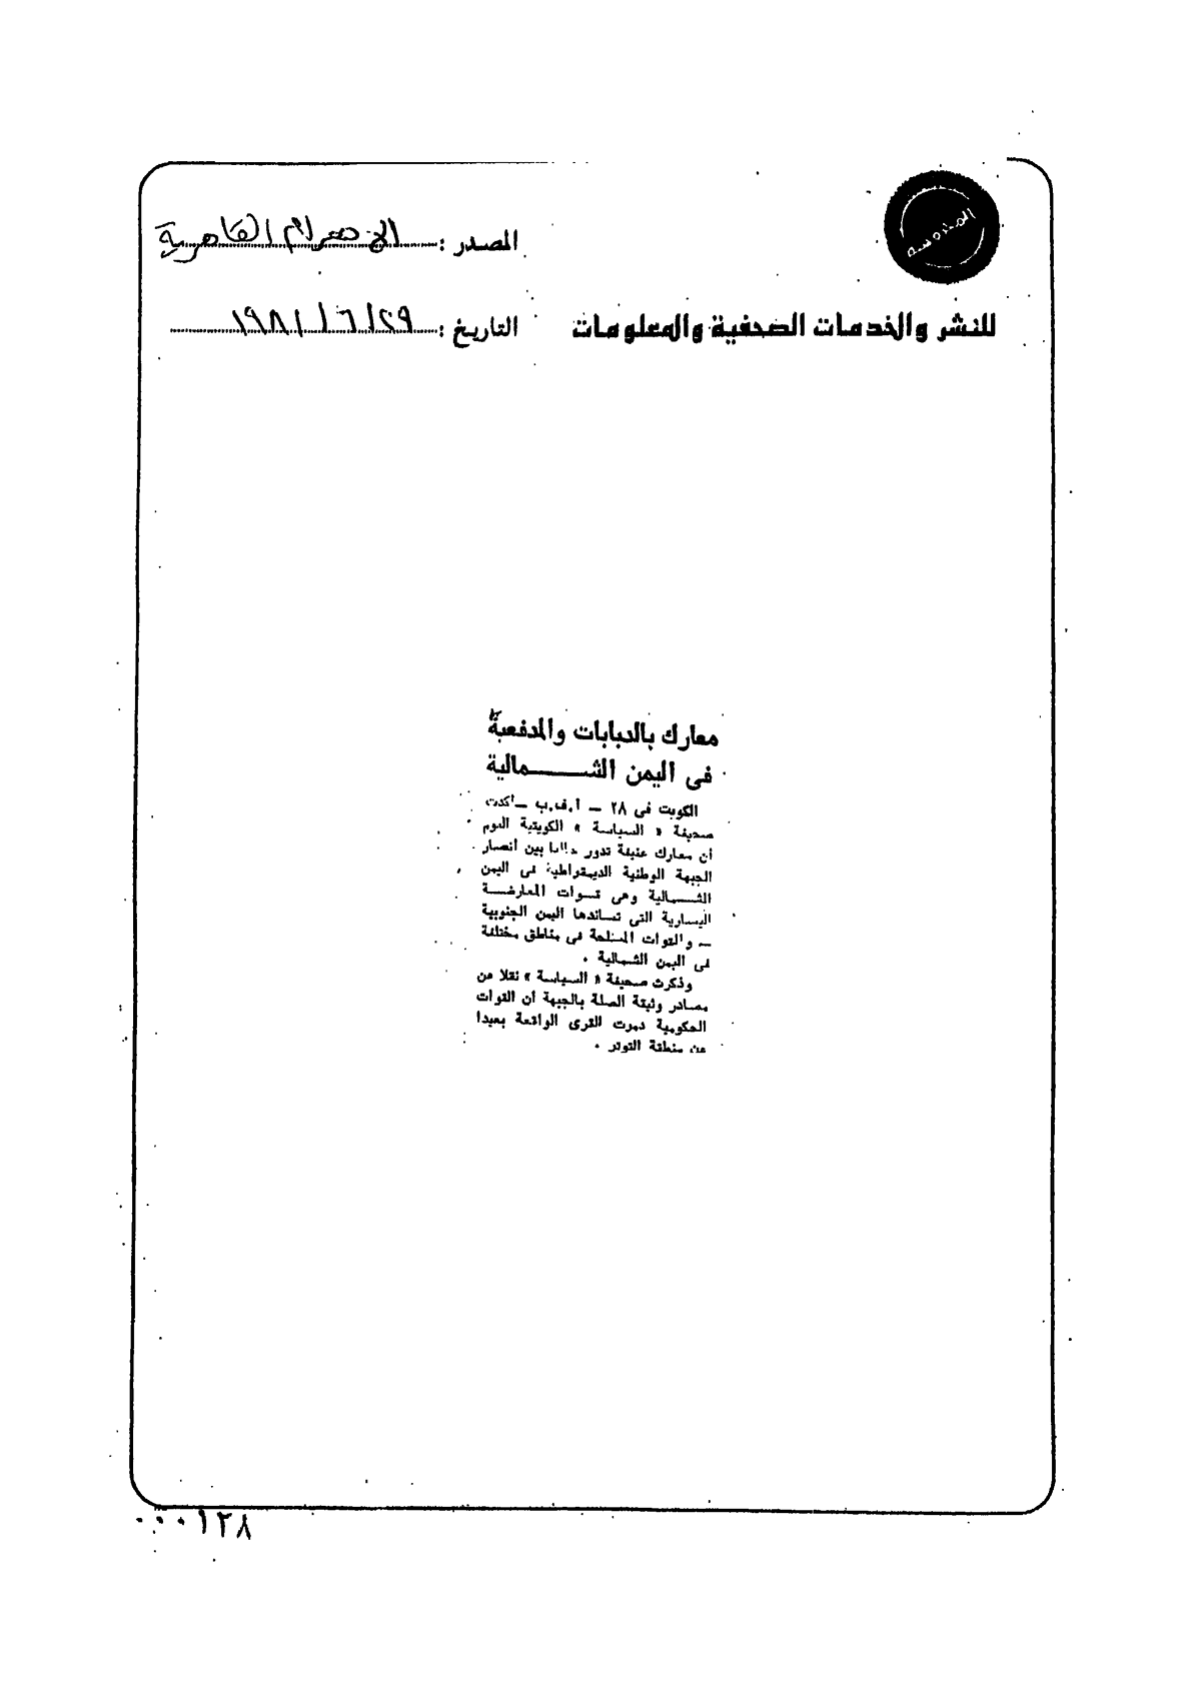 المحروسة
المصدر : الاهرام القاهرية
للنشر والخدمات الصحفية والمعلومات
التاريخ : ٢٩/ ٦ / ١٩٨١
معارك بالدبابات والمدفعية
فى اليمن الشمالية
الكويت فى ٢٨ – أ.ف.ب – أكدت
صحيفة « السياسة » الكويتية اليوم
أن معارك عنيفة تدور حاليا بين أنصار
الجبهة الوطنية الديمقراطية فى اليمن
الشمالية وهى قوات المعارضة
اليسارية التى تساندها اليمن الجنوبية
– والقوات المسلحة فى مناطق مختلفة
فى اليمن الشمالية .
وذكرت صحيفة « السياسة » نقلا عن
مصادر وثيقة الصلة بالجبهة أن القوات
الحكومية دمرت القرى الواقعة بعيدا
عن منطقة التوتر .
٠٠٠١٢٨